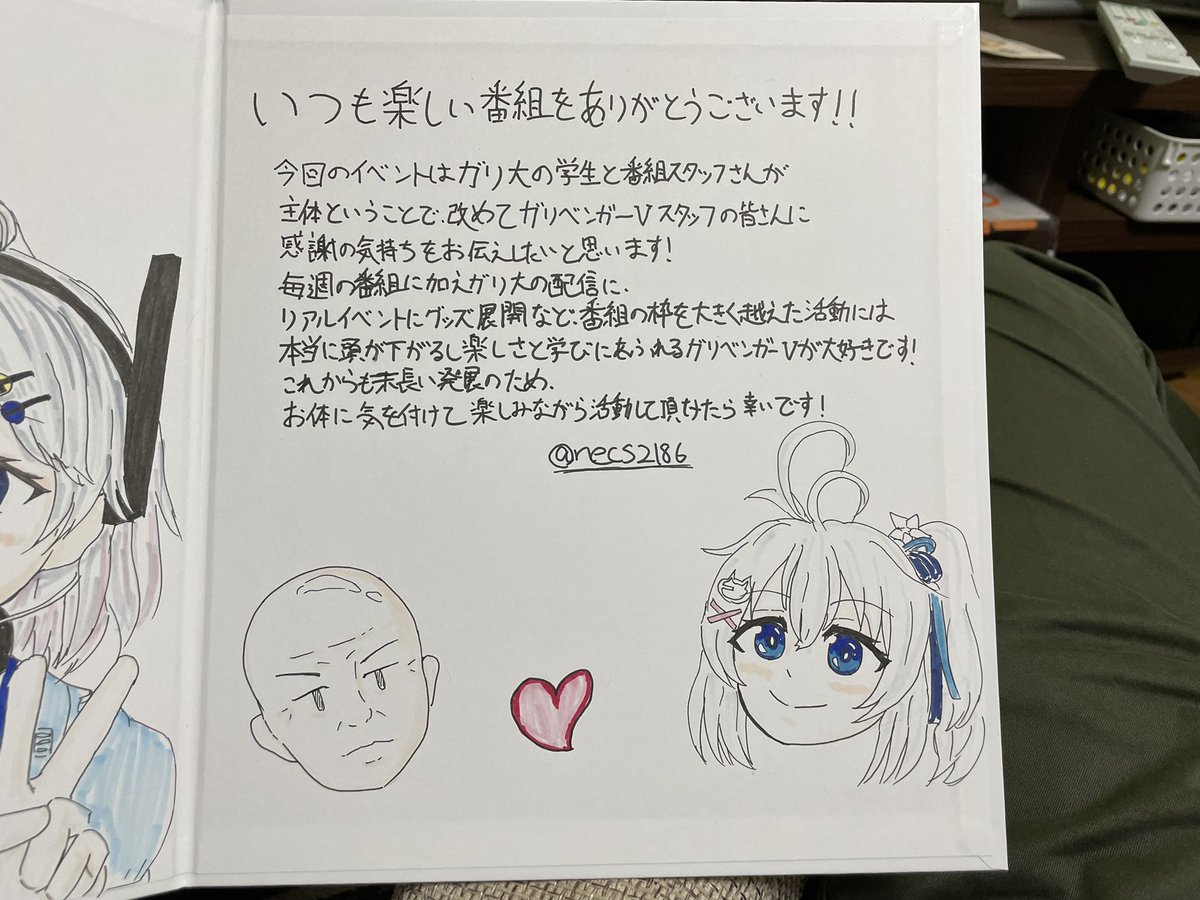 いつも楽しい番組をありがとうございます!!
今回のイベントはガリ大の学生と番組スタッフさんが
主体ということで、改めてガリベンガーVスタッフの皆さんに
感謝の気持ちをお伝えしたいと思います!
毎週の番組に加えガリ大の配信に、
リアルイベントにグッズ展開など、番組の枠を大きく越えた活動には
本当に頭が下がるし楽しさと学びにあふれるガリベンガーVが大好きです!
これからも末長い発展のため、
お体に気を付けて楽しみながら活動して頂けたら幸いです!
@necs2186